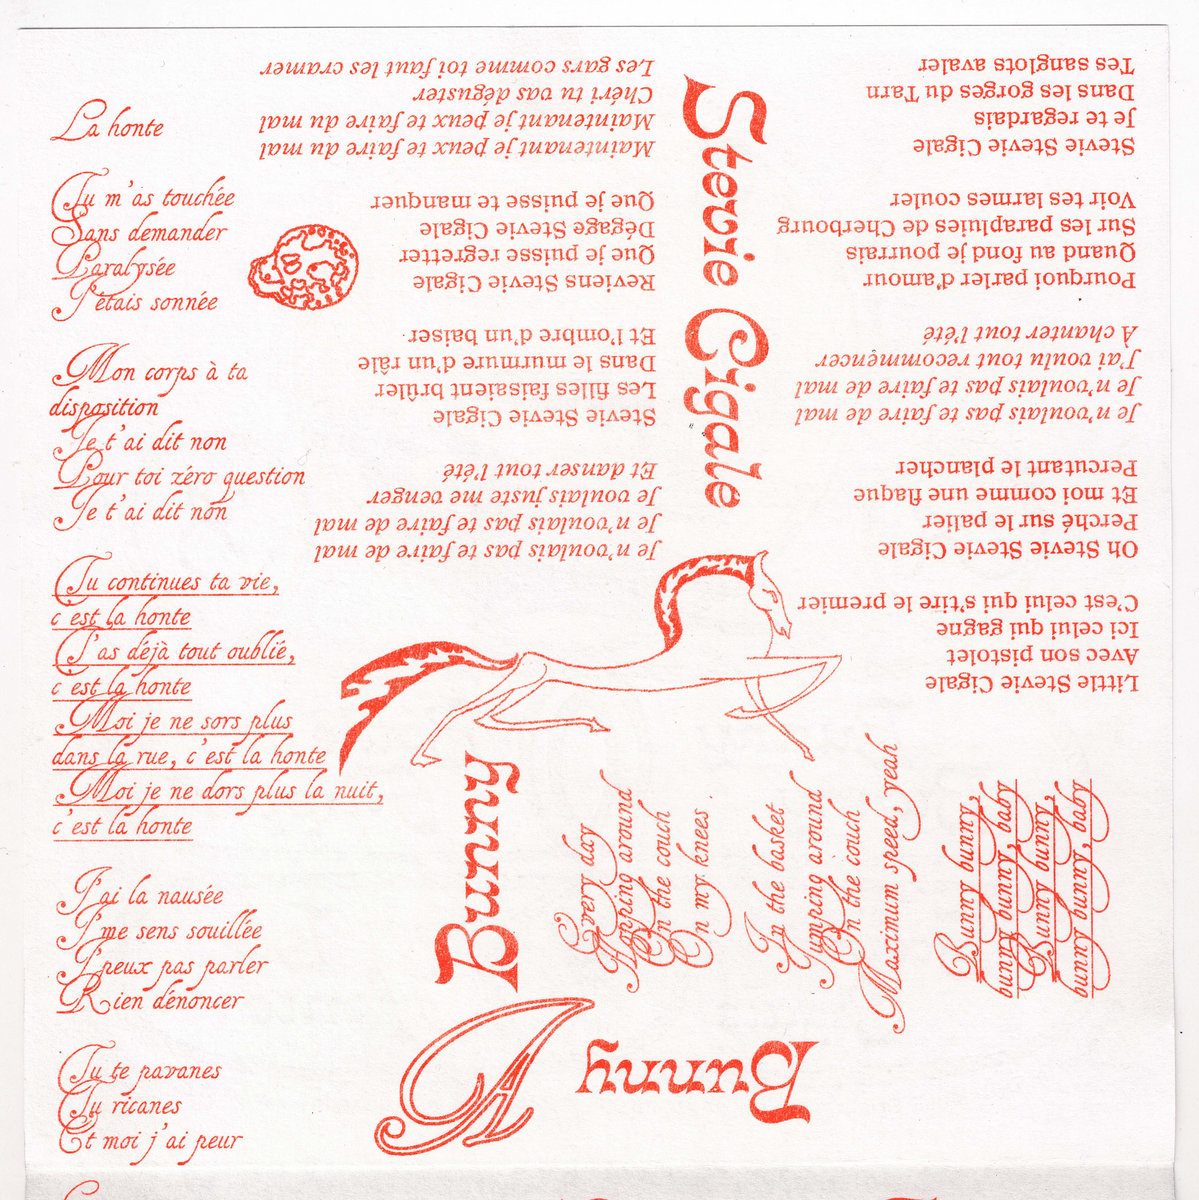 La honte
Tu m'as touchée
Sans demander
Paralysée
J'étais sonnée
Mon corps à ta
disposition
Je t'ai dit non
Pour toi zéro question
Je t'ai dit non
Tu continues ta vie,
c'est la honte
T'as déjà tout oublié,
c'est la honte
Moi je ne sors plus
dans la rue, c'est la honte
Moi je ne dors plus la nuit,
c'est la honte
J'ai la nausée
J'me sens souillée
J'peux pas parler
Rien dénoncer
Tu te pavanes
Tu ricanes
Et moi j'ai peur
Stevie Cigale
Little Stevie Cigale
Avec son pistolet
Ici celui qui gagne
C'est celui qui s'tire le premier
Oh Stevie Stevie Cigale
Perché sur le palier
Et moi comme une flaque
Percutant le plancher
Je n'voulais pas te faire de mal
Je n'voulais pas te faire de mal
J'ai voulu tout recommencer
A chanter tout l'été
Pourquoi parler d'amour
Quand au fond je pourrais
Sur les parapluies de Cherbourg
Voir tes larmes couler
Stevie Stevie Cigale
Je te regardais
Dans les gorges du Tarn
Tes sanglots avaler
Je n'voulais pas te faire de mal
Je n'voulais pas te faire de mal
Je voulais juste me venger
Et danser tout l'été
Stevie Stevie Cigale
Les filles faisaient brûler
Dans le murmure d'un râle
Et l'ombre d'un baiser
Reviens Stevie Cigale
Que je puisse regretter
Dégage Stevie Cigale
Que je puisse te manquer
Maintenant je peux te faire du mal
Maintenant je peux te faire du mal
Chéri tu vas déguster
Les gars comme toi faut les cramer
Bunny
Every day
Hopping around
On the couch
On my knees
In the basket
Jumping around
On the couch
Maximum speed, yeah
Bunny bunny,
bunny bunny, baby
Bunny bunny,
bunny bunny, baby
A
Bunny